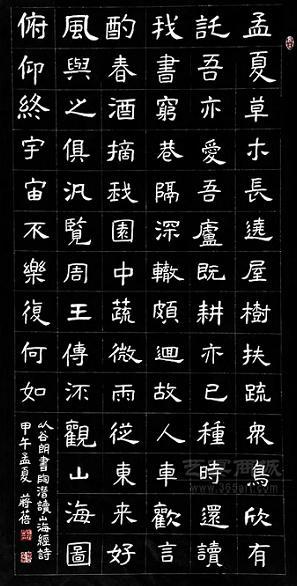 孟夏草木長遶屋樹扶疏衆鳥欣有
託吾亦愛吾廬既耕亦已種時還讀
我書窮巷隔深轍頗迴故人車歡言
酌春酒摘我園中蔬微雨從東来好
風與之俱汎覽周王傳流觀山海圖
俯仰終宇宙不樂復何如
以谷朗書陶潛讀山海經詩
甲午孟夏 蒋蓓